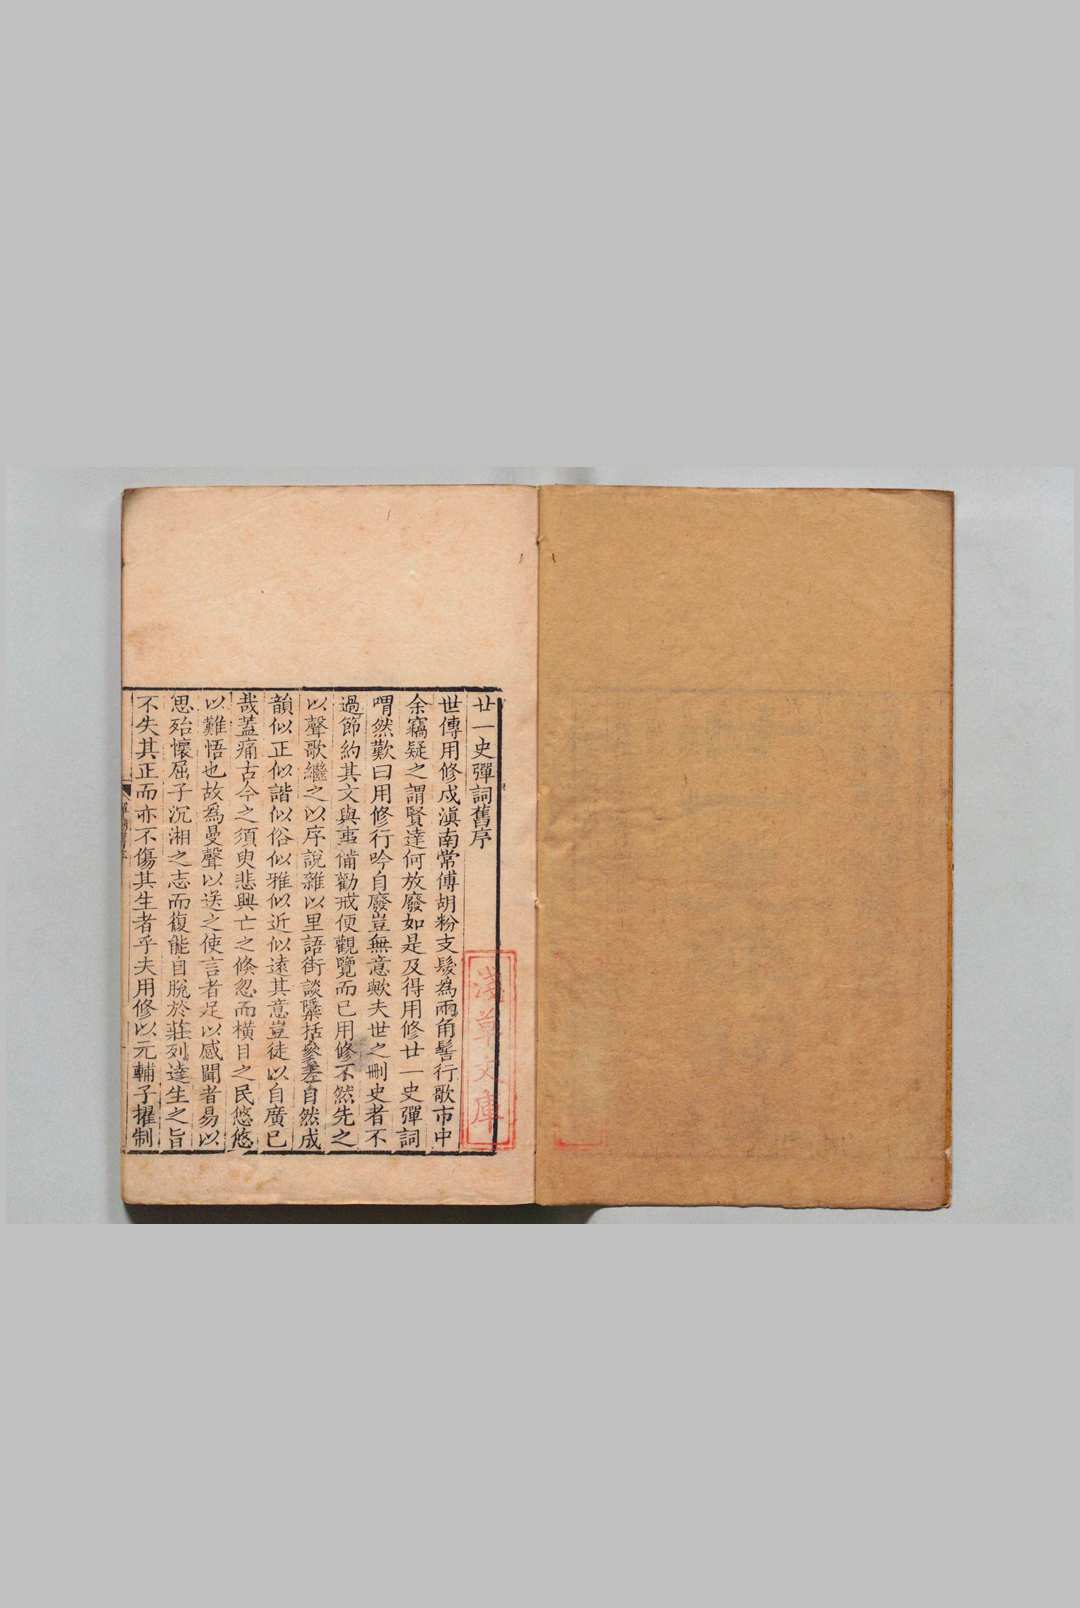 廿一史彈詞舊序
世傳用修戍滇南常傅胡粉支髮為兩角髻行歌市中
余竊疑之謂賢達何放廢如是及得用修廿一史彈詞
喟然歎曰用修行吟自廢豈無意歟夫世之刪史者不
過節約其文與事備勸戒便觀覽而已用修不然先之
以聲歌繼之以序說雜以里語街談隱括參差自然成
韻似正似諧似俗似雅似近似遠其意豈徒以自廣已
哉蓋痛古今之須臾悲興亡之倏忽而橫目之民悠悠
以難悟也故為曼聲以送之使言者足以感聞者易以
思殆懷屈子沉湘之志而復能自脫於莊列達生之旨
不失其正而亦不傷其生者乎夫用修以元輔子擢制
淺草文庫